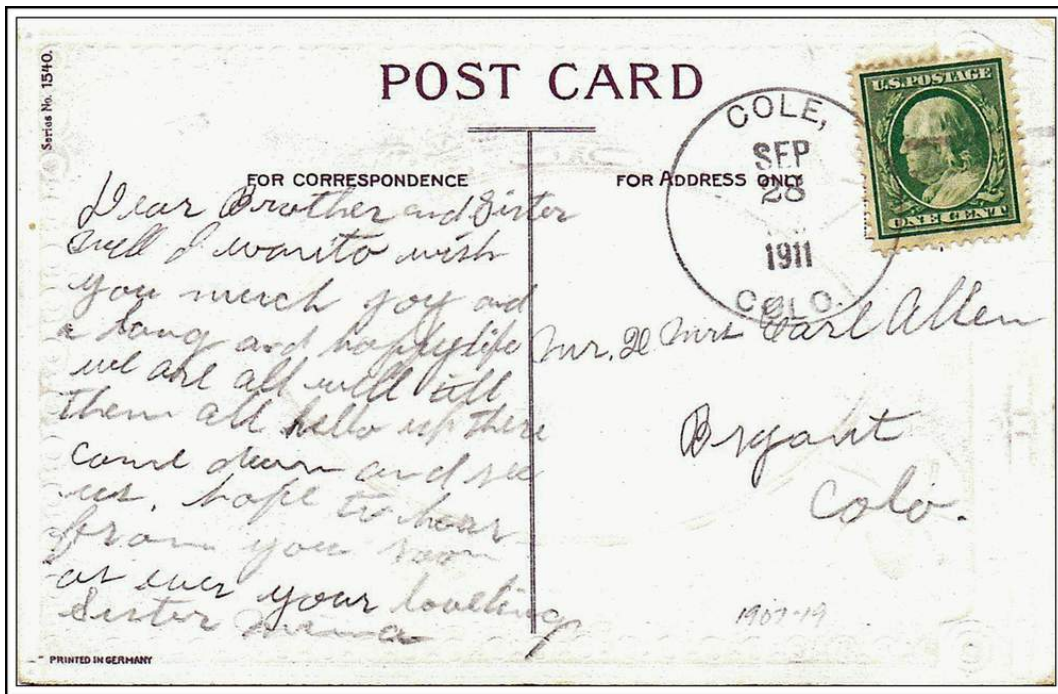 Series No. 1540.
POST CARD
FOR CORRESPONDENCE
FOR ADDRESS ONLY
COLE,
SEP
28
1911
COLO.
U.S. POSTAGE
ONE CENT
Dear Brother and Sister
well I wanto wish
you much joy and
a long and happy life
we are all well till
them all hello up there
come down and see
us. hope to hear
from you soon
as ever your loveling
Sister
Mr. & Mrs Earl Allen
Bryant
Colo.
1907-19
PRINTED IN GERMANY